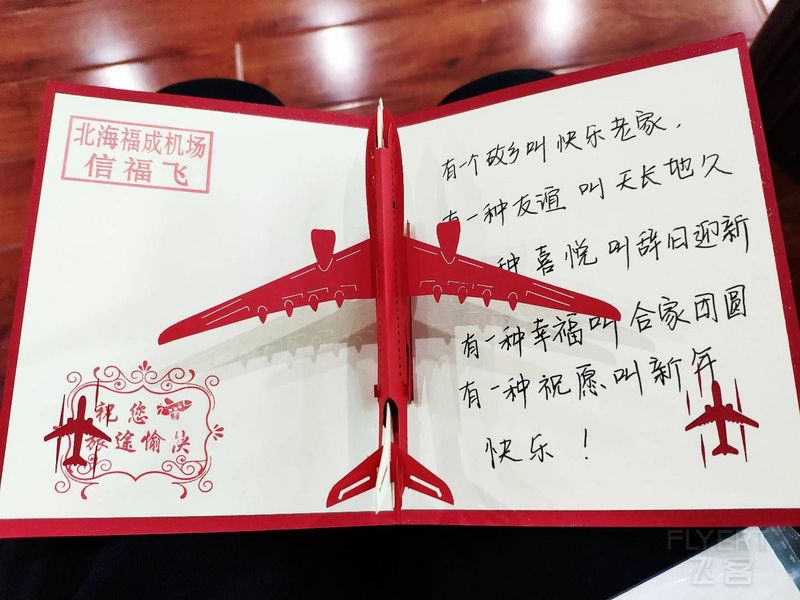 北海福成机场
信福飞
祝您
旅途愉快
有一个故乡叫快乐老家,
有一种友谊叫天长地久
种喜悦叫辞旧迎新
有一种幸福叫合家团圆
有一种祝愿叫新年
快乐!
FLYERT
飞客